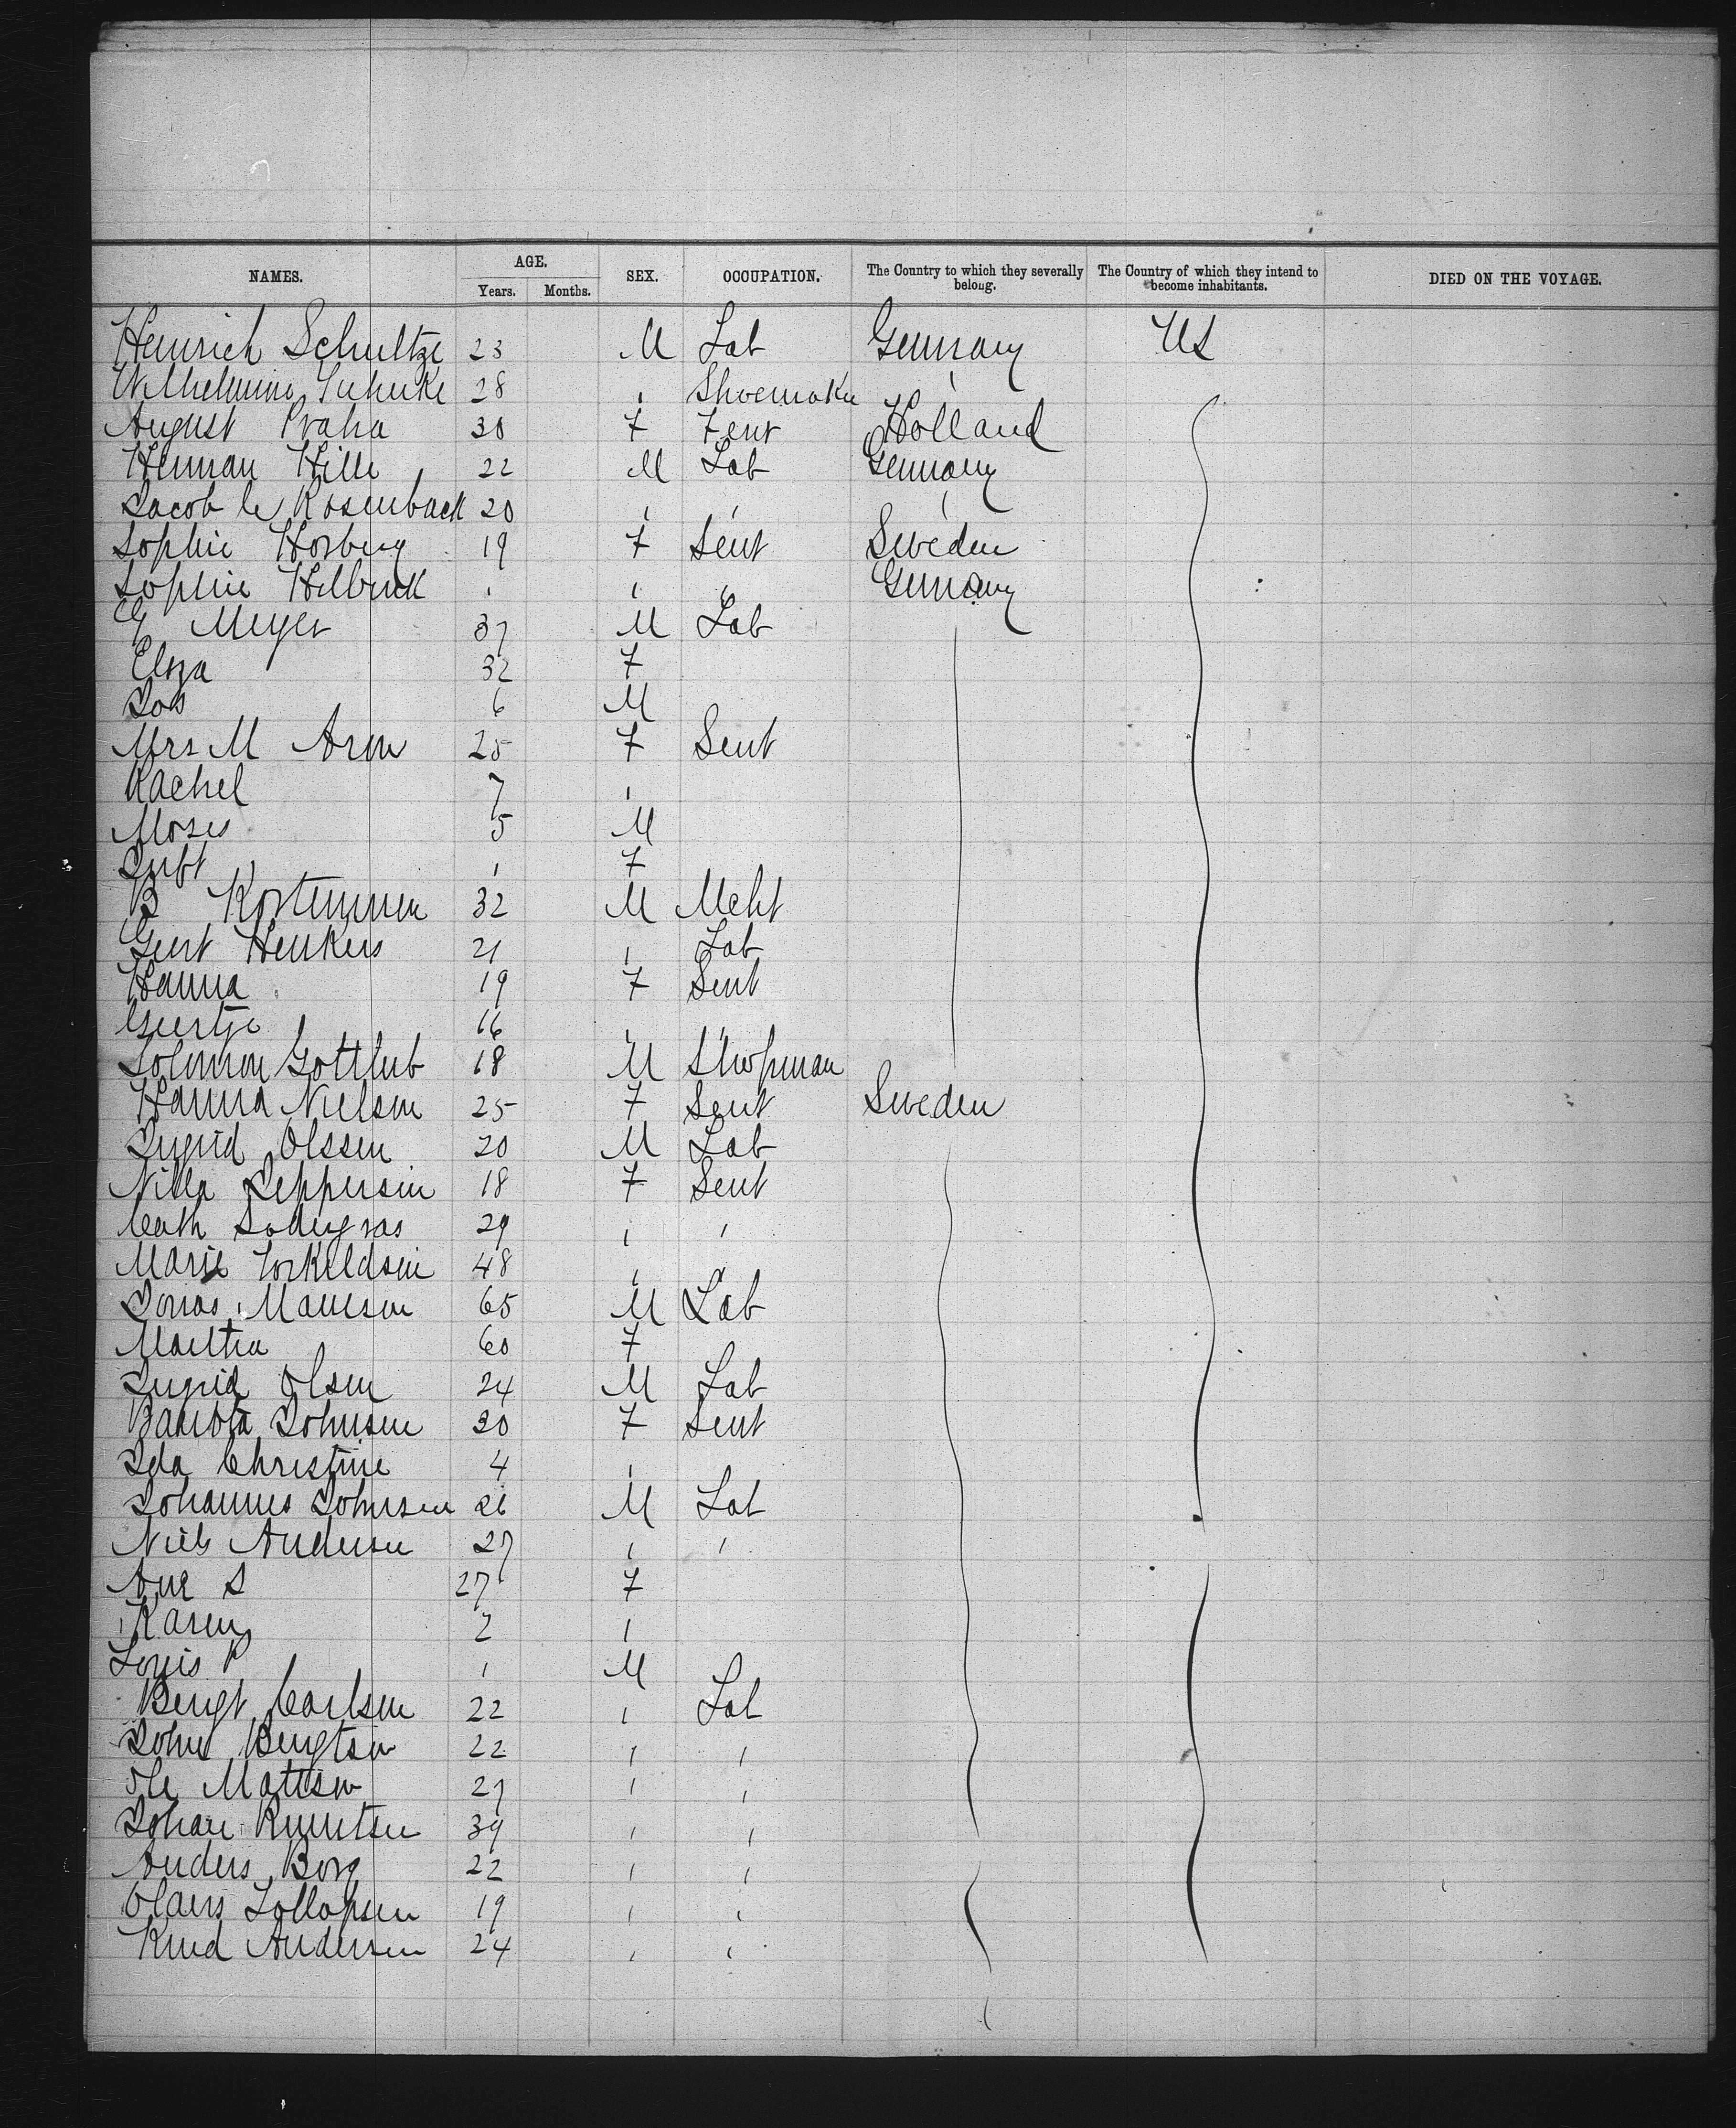 NAMES. AGE. Years. Months. SEX. OCCUPATION. The Country to which they severally belong. The Country of which they intend to become inhabitants. DIED ON THE VOYAGE.
Heinrich Schultze 23 M Lab Germany US
28 Shoemaker
August Praha 30 F Holland
Herman Hille 22 M Lab Germany
Jacob C Rosenback 20
Sophie Horberg 19 F Sevt Sweden
Sophie Germany
G Meyer 37 M Lab
Eliza 32 F
Jos 6 M
Mrs M Aron 25 F Sevt
Rachel 7
Moses 5 M
Inft 1 F
B 32 M Mcht
Geert Henkers 21 Lab
Hanna 19 F Sevt
Geertje 16
Solomon Gottlieb 18 M Shopman
Hanna Nielson 25 F Sevt Sweden
Ingrid Olssen 20 M Lab
Nilla Jeppersin 18 F Sevt
Cath 29
Marie Torkildsen 48
Jonas Maunson 65 M Lab
Martha 60 F
Ingrid Olsen 24 M Lab
Johnsen 30 F Sevt
Ida Christine 4
Johannes Johnsen 26 M Lab
Niels Andersen 27
Ane S 27 F
Karen 2
Louis P 1 M
Bengt Carlsen 22 Lab
John Bengtson 22
Ole Mattson 27
Johan 39
Anders Borg 22
19
Knud Andersen 24